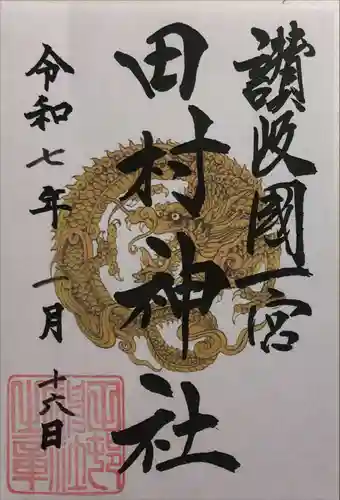 讃岐國一宮
田村神社
令和七年 一月 十六日